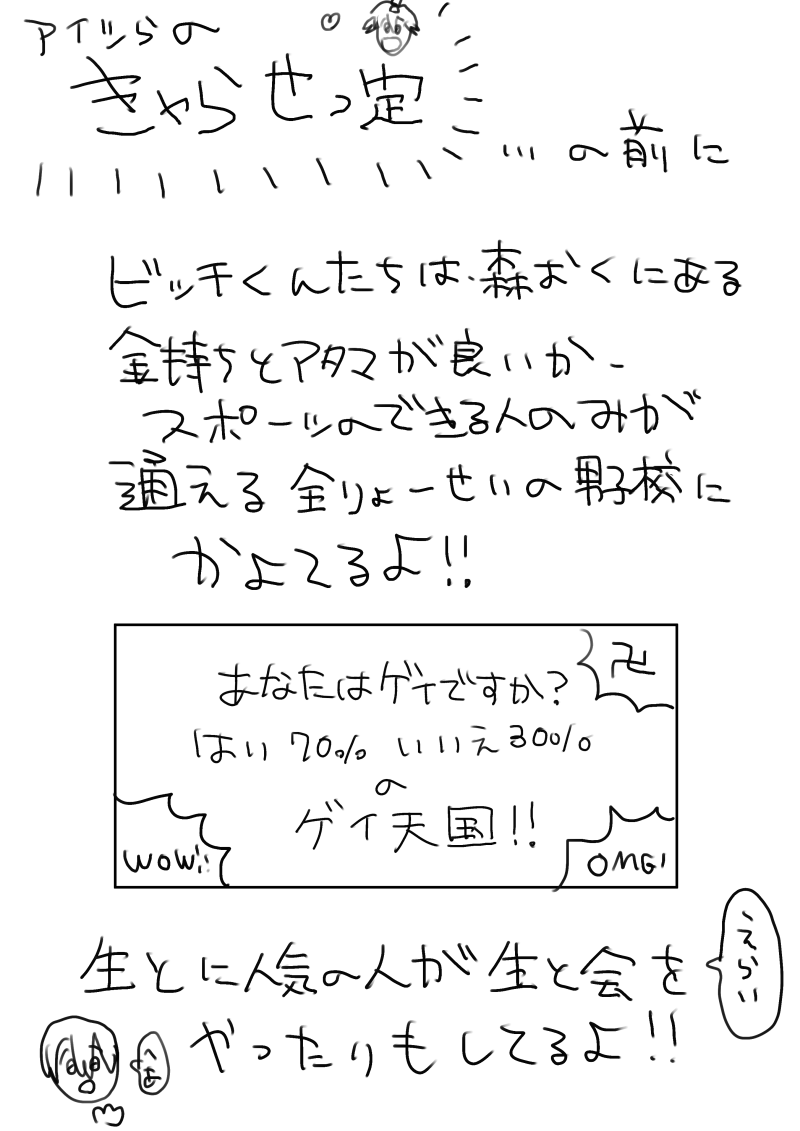 アイツらの
きゃらせっ定
…の前に
ビッチくんたちは、森おくにある
金持ちとアタマが良いか、
スポーツのできる人のみが
通える全りょーせいの男子校に
かよてるよ!!
卍
あなたはゲイですか?
はい70% いいえ30%
の
ゲイ天国!!
WOW!!
OMG!
生とに人気の人が生と会を
えらい
やったりもしてるよ!!